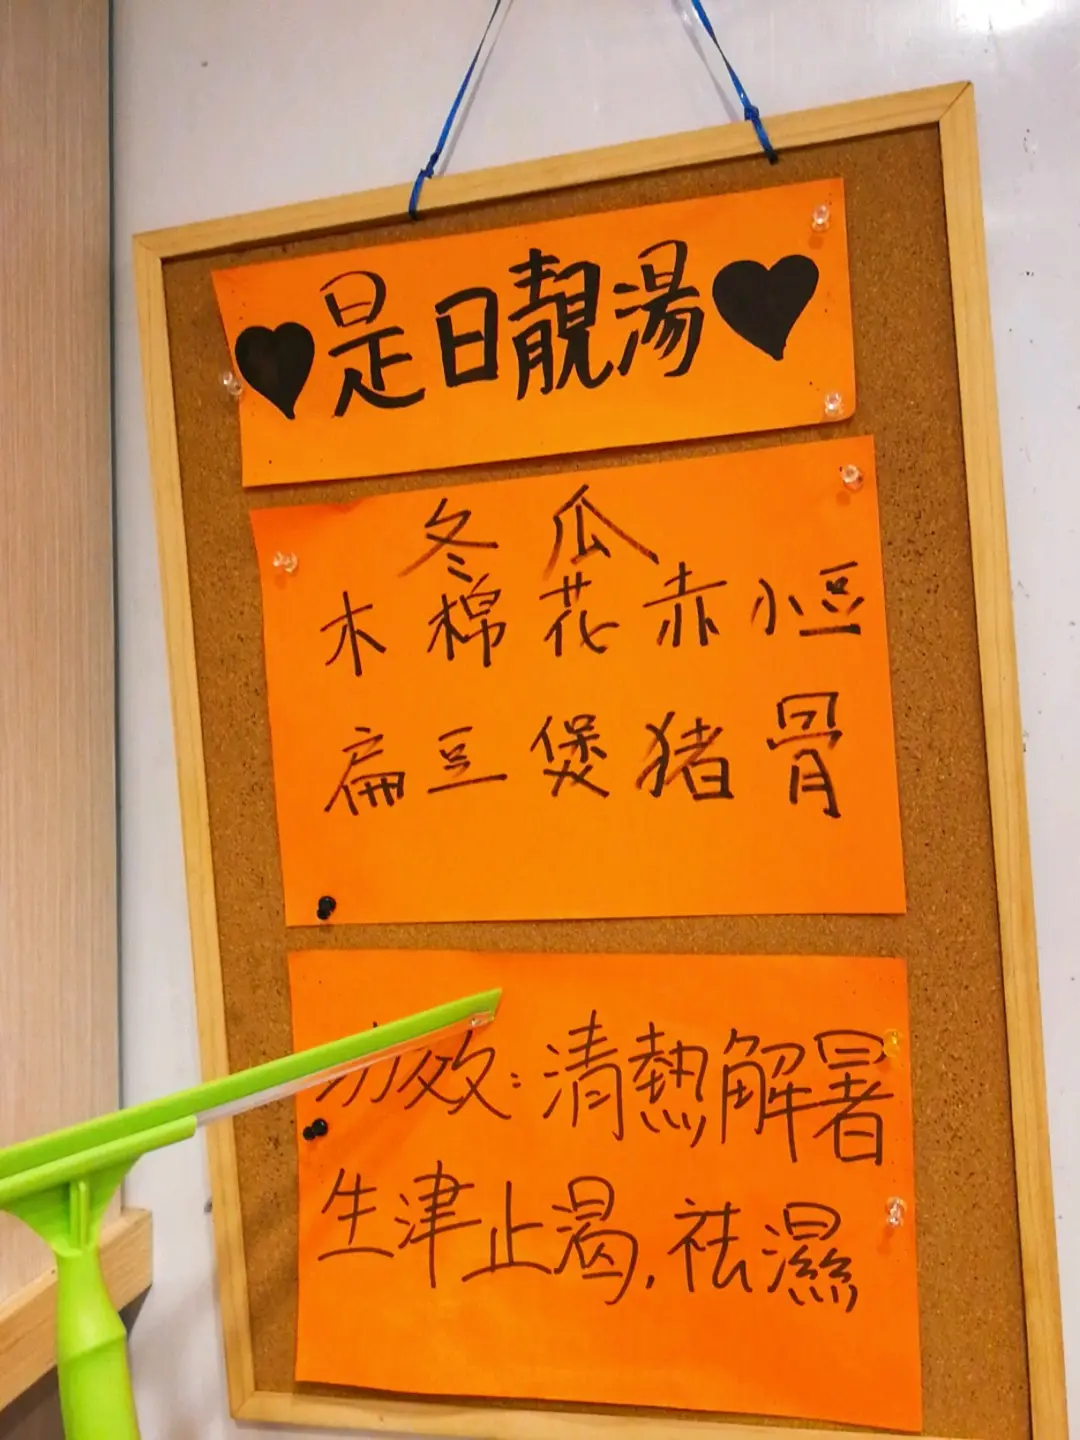 ♥是日靚湯♥
冬瓜
木棉花赤小豆
扁豆煲猪骨
功效:清熱解暑
生津止渴,祛濕